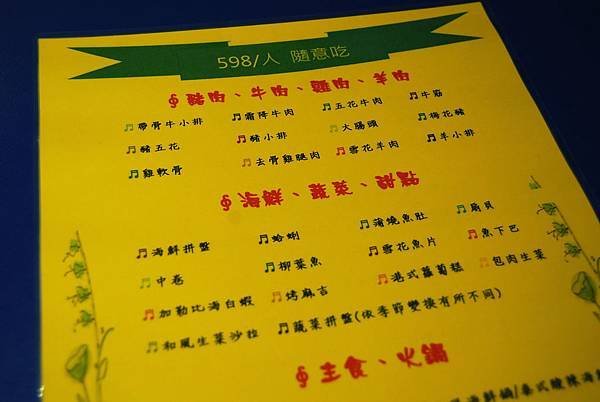 598/人 隨意吃
豬肉、牛肉、雞肉、羊肉
帶骨牛小排 霜降牛肉 五花牛肉 牛筋
豬五花 豬小排 大腸頭 梅花豬
雞軟骨 去骨雞腿肉 雪花羊肉 羊小排
海鮮、蔬菜、甜點
海鮮拼盤 蛤蜊 蒲燒魚肚 扇貝
中卷 柳葉魚 雪花魚片 魚下巴
加勒比海白蝦 烤麻吉 港式蘿蔔糕 包肉生菜
和風生菜沙拉 蔬菜拼盤(依季節變換有所不同)
主食、火鍋
海鮮鍋/泰式酸辣海